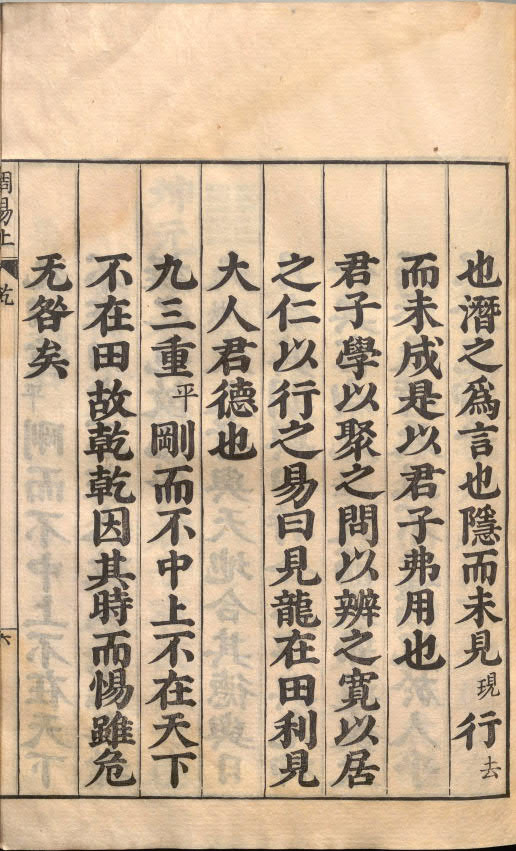 也潛之爲言也隱而未見現行去
而未成是以君子弗用也
君子學以聚之問以辨之寬以居
之仁以行之易曰見龍在田利見
大人君德也
九三重平剛而不中上不在天下
不在田故乾乾因其時而惕雖危
无咎矣
周易上 乾
六